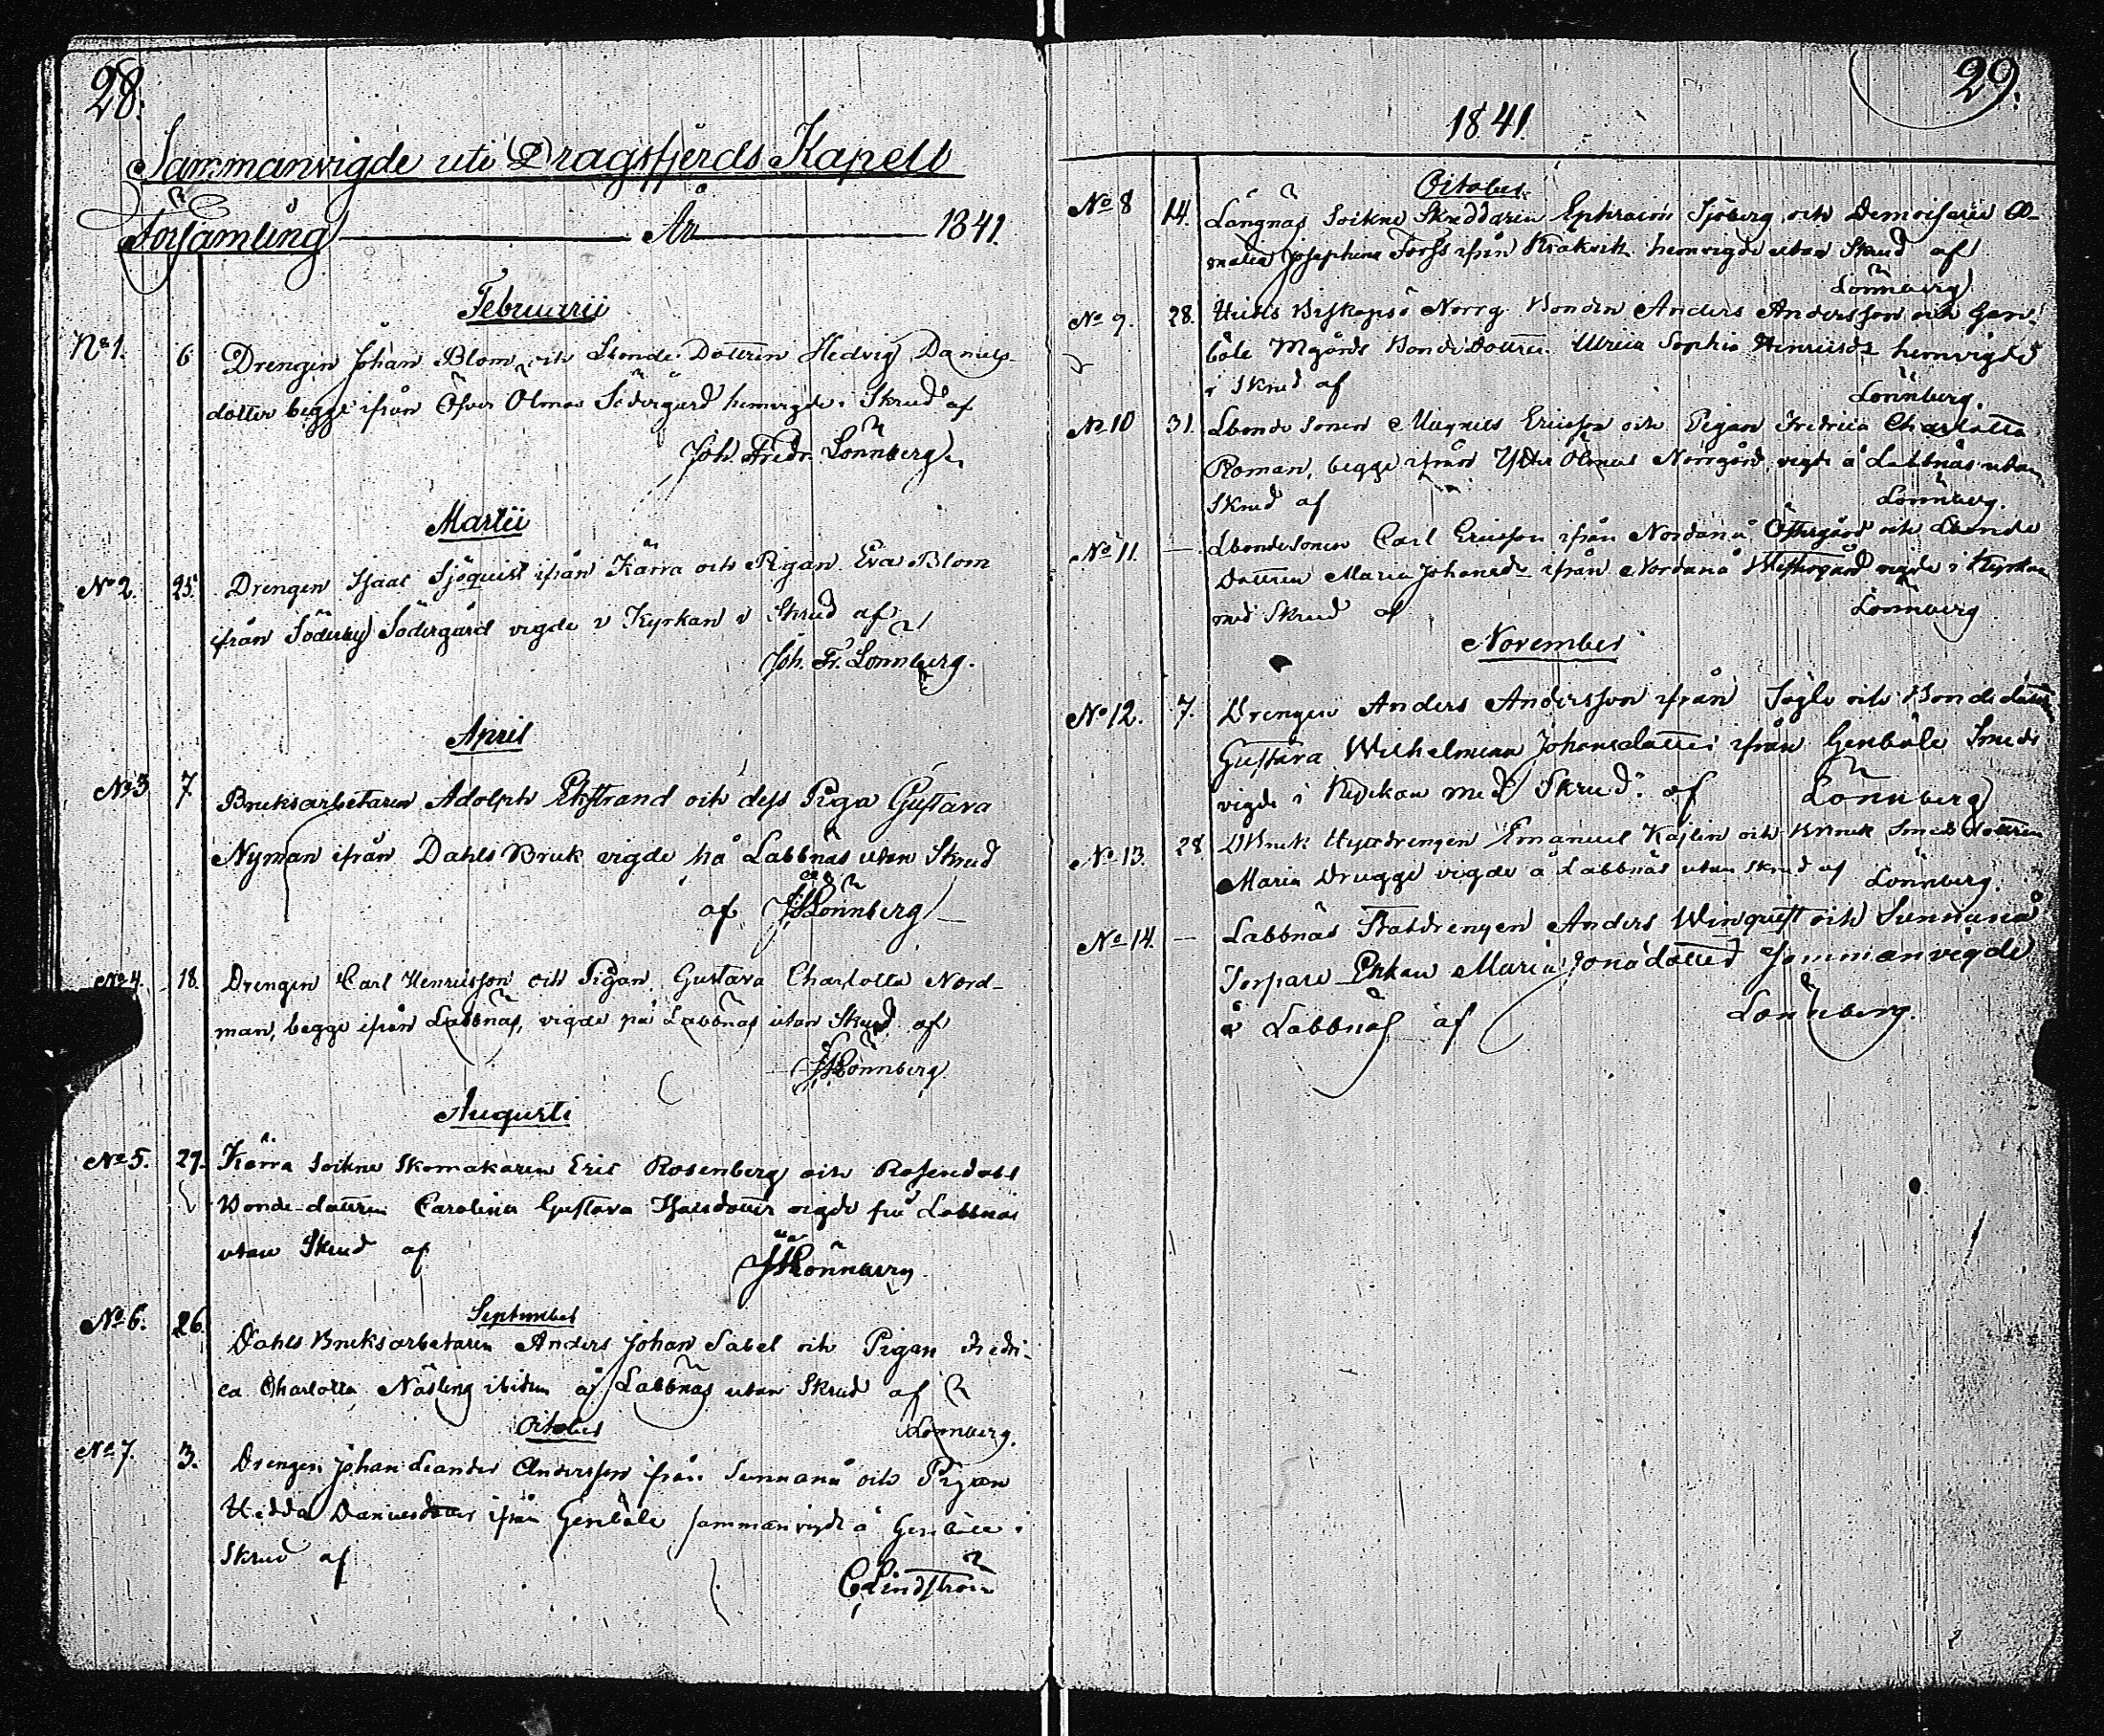 28.
Sammanvigde uti Dragsfjerds Kapell
Församling År 1841.
Februarii
No 1. 6 Drengen Johan Blom och Lbonde Dottren Hedvig Daniels
dotter begge ifrån Öfver Olmos Södergård hemvigde i Skrud af
Joh. Fredr. Lönnberg.
Martii
No 2. 25. Drengen Isaac Sjöquist ifrån Kärra och Pigan Eva Blom
ifrån Söderby Södergård vigde i Kyrkan i Skrud af
Joh. Fr. Lönnberg.
April
No 3 7 Bruksarbetaren Adolph Ekstrand och dess Piga Gustava
Nyman ifrån Dahls Bruk vigde på Labbnäs utan Skrud
af JFLönnberg
No 4. 18. Drengen Carl Henricsson och Pigan Gustava Charlotta Nord-
man, begge ifrån Labbnäs, vigde på Labbnäs utan Skrud af
JFLönnberg
Augusti
No 5. 29. Kärra Sockne Skomakaren Eric Rosenberg och Rosendahls
Bonde-dottren Carolina Gustava Isacsdotter vigde på Labbnäs
utan Skrud af
JFLönnberg
September
No 6. 26. Dahls Bruksarbetaren Anders Johan Sabel och Pigan Fredri-
ca Charlotta Näsling ibidem å Labbnäs utan Skrud af
Lönnberg.
October
No 7. 3. Drengen Johan Leander Andersson ifrån Sunnanå och Pigan
Hedda Danielsdotter ifrån Genböle sammanvigde å Genböle i
Skrud af
CLindström
29.
1841
October
No 8 14. Långnäs Sockne Skräddaren Ephraim Sjöberg och Demoiselle A-
malia Josephina Forss ifrån Kråkvik hemvigde utan Skrud af
Lönnberg
No 9. 28. Hitis Biskopsö Norrg. Bonden Anders Andersson och Gen-
böle Mgårds Bonde Dottren Ulrica Sophia Henricsdr hemvigde
i Skrud af
Lönnberg.
No 10 31. Lbonde Sonen Magnus Ericsson och Pigan Fredrica Charlotta
Roman, begge ifrån Ytter Olmos Norrgård, vigde å Labbnäs utan
Skrud af
Lönnberg.
No 11. — LbondeSonen Carl Ericsson ifrån Nordanå Östergård och Lbonde
Dottren Maria Johansdr ifrån Nordanå Westergård vigde i Kyrkan
med Skrud af
Lönnberg
November
No 12. 7. Drengen Anders Andersson ifrån Sögle och Bondedottren
Gustava Wilhelmina Johansdotter ifrån Genböle Smeds
vigde i Kyrkan med Skrud af Lönnberg
No 13. 28 DBruk Hyttdrengen Emanuel Kajlin och Bruk Smedsdottren
Maria Drugge vigde å Labbnäs utan skrud af Lönnberg.
No 14. — Labbnäs Statdrengen Anders Winquist och Sunnanå
Torpare Enkan Maria Jonasdotter sammanvigde
å Labbnäs af Lönnberg.